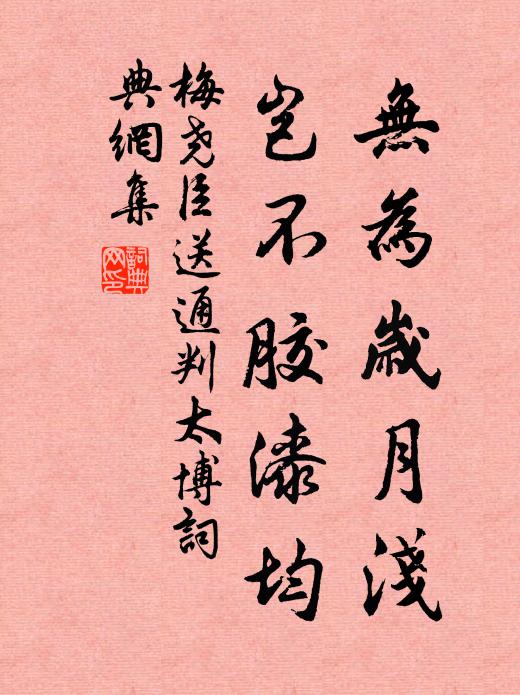 無為歲月淺
豈不膠漆均
梅堯臣送通判太博詞
典網集
詞典
网印